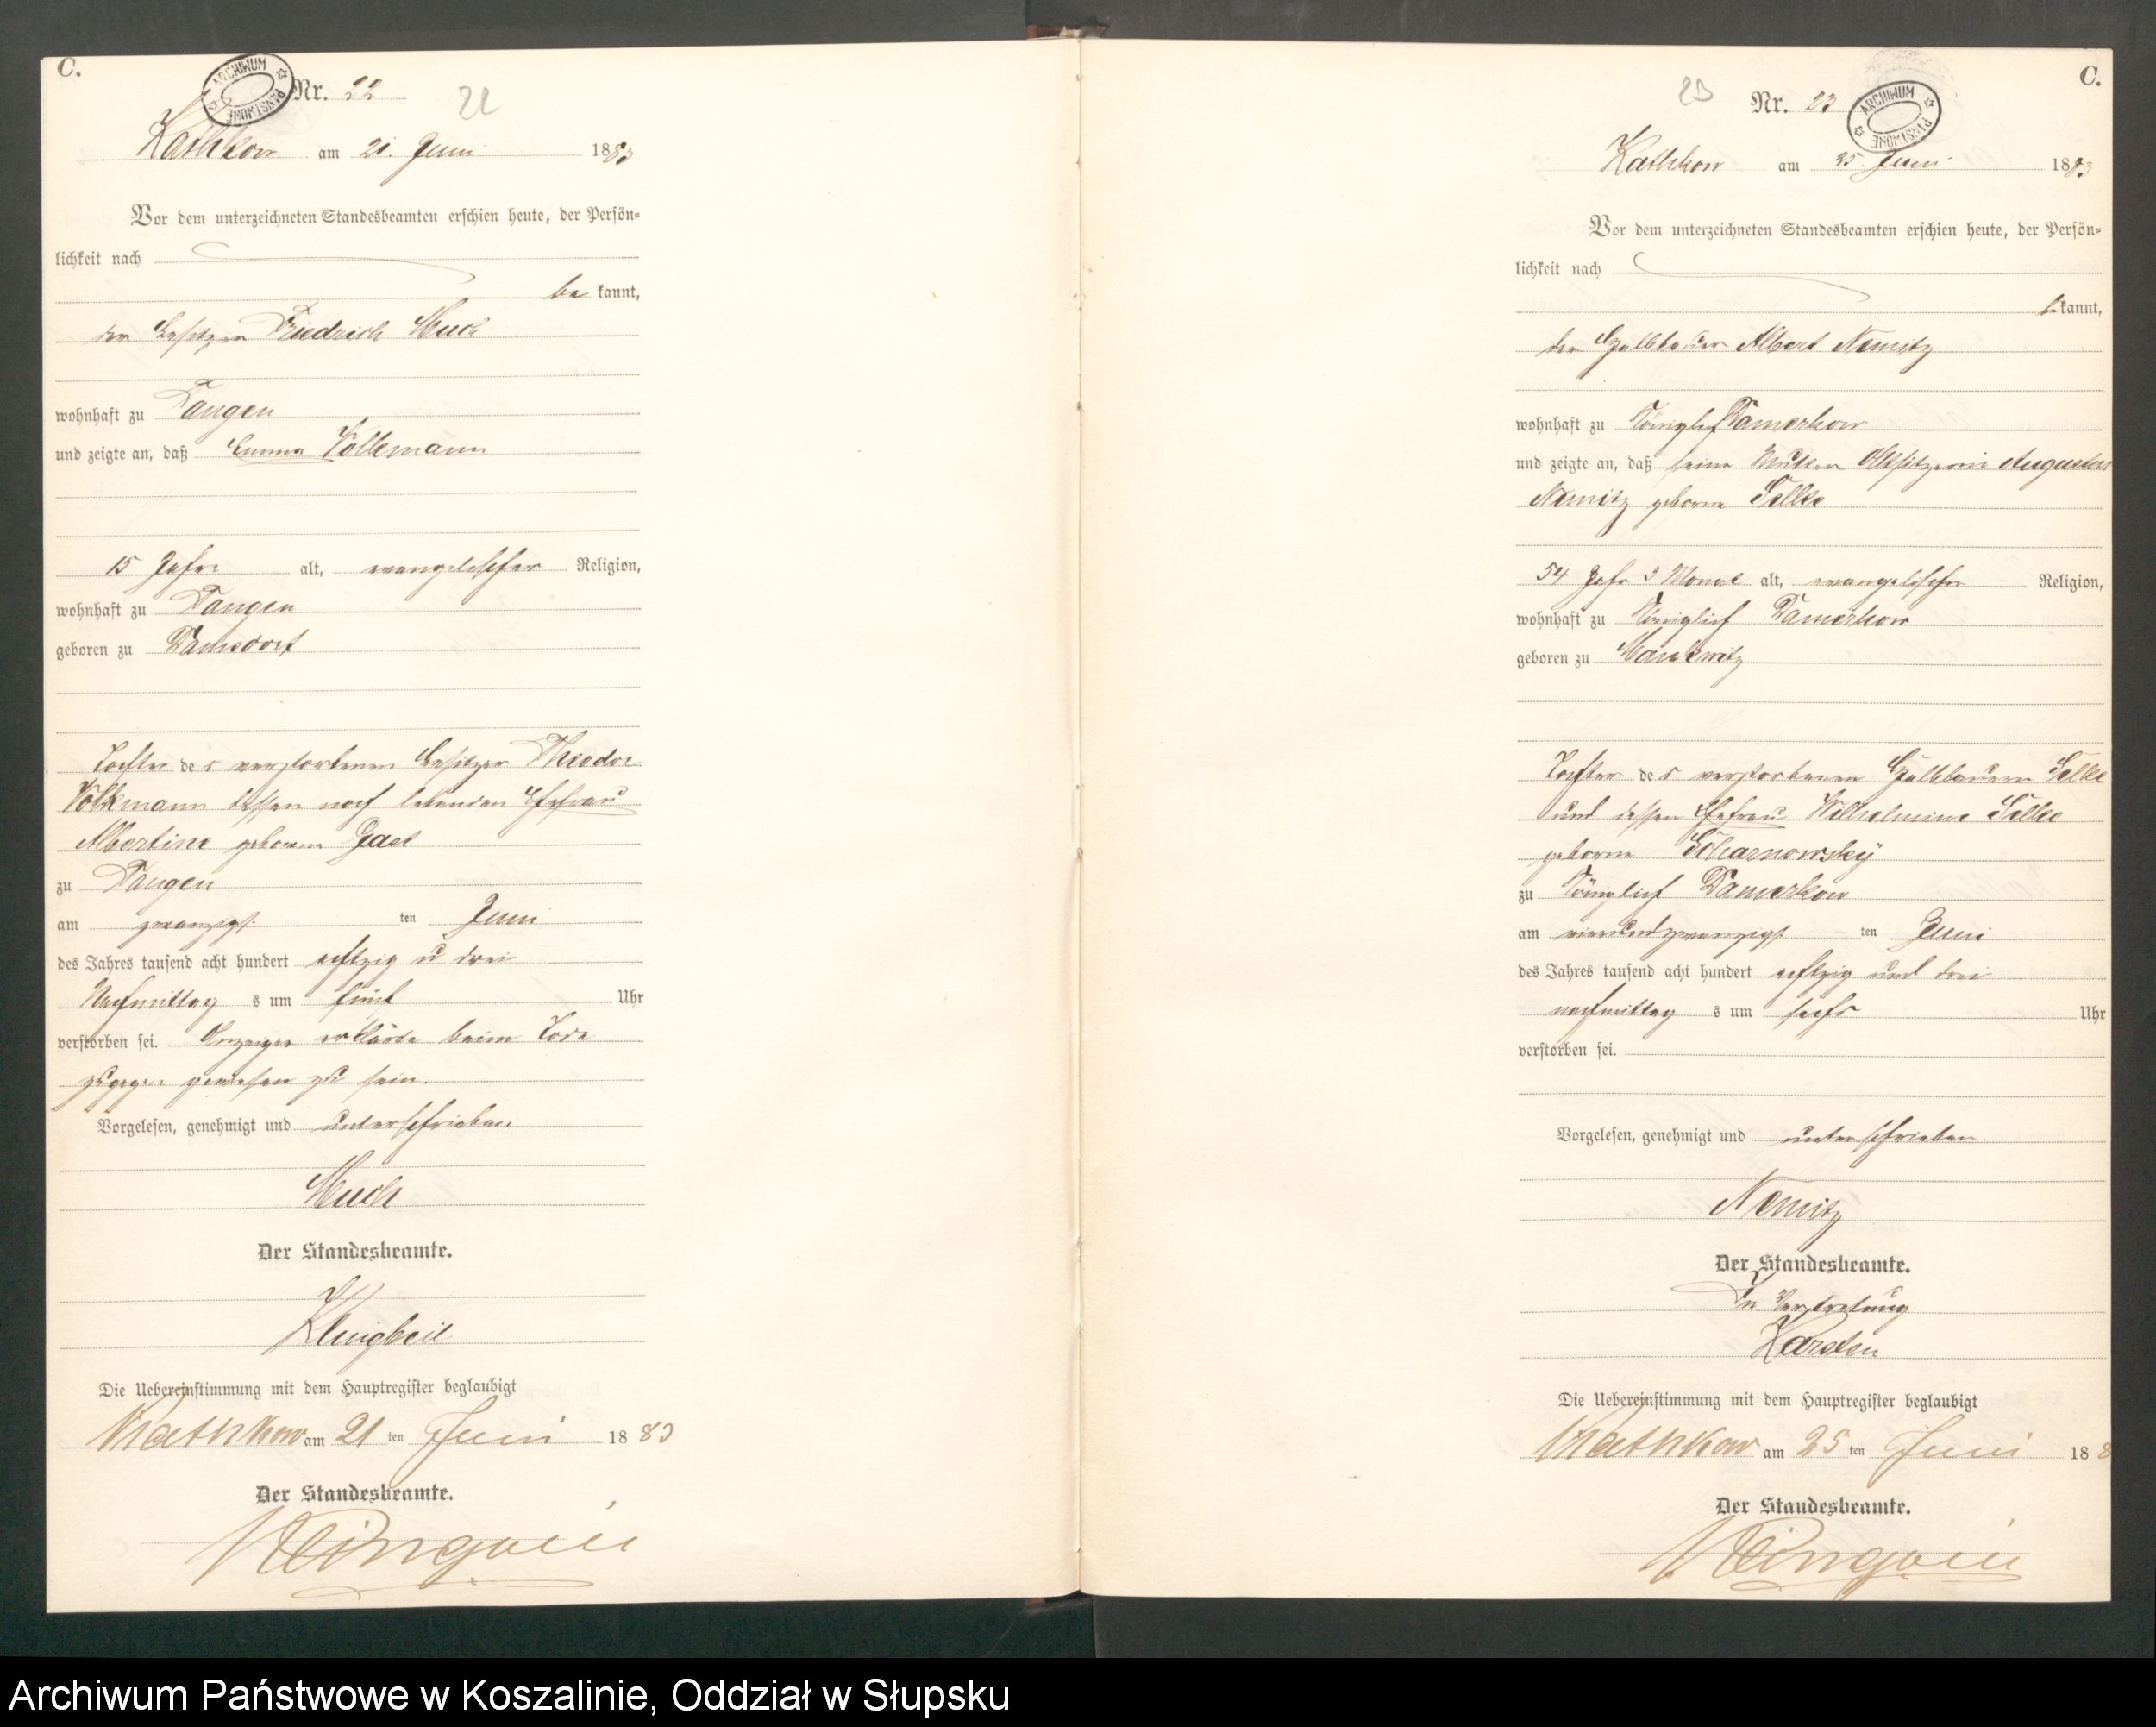 C.
ARCHIWUM PAŃSTWOWE
Nr. 22
22
Kathkow am 21. Juni 1883
Vor dem unterzeichneten Standesbeamten erschien heute, der Persön=
lichkeit nach
be kannt,
der Besitzer Friedrich Much
wohnhaft zu Tangen
und zeigte an, daß Emma Volkmann
15 Jahre alt, evangelischer Religion,
wohnhaft zu Tangen
geboren zu Damsdorf
Tochter des verstorbenen Besitzer Theodor
Volkmann dessen noch lebenden Ehefrau
Albertine geborne
zu Tangen
am zwanzigsten Juni
des Jahres tausend acht hundert achtzig u drei
Nachmittag s um fünf Uhr
verstorben sei. Anzeiger erklärte beim Tode
zugegen gewesen zu sein.
Vorgelesen, genehmigt und unterschrieben
Much
Der Standesbeamte.
Klingbeil
Die Uebereinstimmung mit dem Hauptregister beglaubigt
Kathkow am 21 ten Juni 1883
Der Standesbeamte.
C.
23
Nr. 23
ARCHIWUM PAŃSTWOWE
Kathkow am 25. Juni 1883
Vor dem unterzeichneten Standesbeamten erschien heute, der Persön=
lichkeit nach
bekannt,
der Halbbauer Albert Nemitz
wohnhaft zu Königlich Damerkow
und zeigte an, daß seine Mutter Altsitzerin Auguste
Nemitz geborne Selke
54 Jahr 3 Monat alt, evangelischer Religion,
wohnhaft zu Königlich Damerkow
geboren zu
Tochter des verstorbenen Halbbauern Selke
und dessen Ehefrau Wilhelmine Selke
geborne Scharnowsky
zu Königlich Damerkow
am vierundzwanzigsten Juni
des Jahres tausend acht hundert achtzig und drei
nachmittag s um sechs Uhr
verstorben sei.
Vorgelesen, genehmigt und unterschrieben
Nemitz
Der Standesbeamte.
In Vertretung
Karsten
Die Uebereinstimmung mit dem Hauptregister beglaubigt
Kathkow am 25 ten Juni 188
Der Standesbeamte.
Archiwum Państwowe w Koszalinie, Oddział w Słupsku